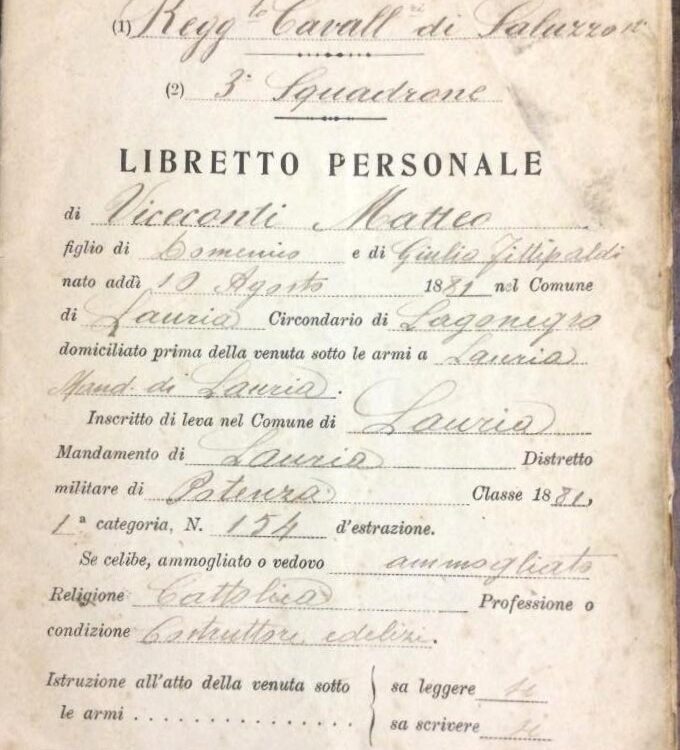 (1) Regg.to Cavall.ri di Saluzzo
(2) 3° Squadrone
LIBRETTO PERSONALE
di Viceconti Matteo
figlio di Domenico e di Giulia
nato addì 10 Agosto 1881 nel Comune
di Lauria Circondario di Lagonegro
domiciliato prima della venuta sotto le armi a Lauria
Mand. di Lauria.
Inscritto di leva nel Comune di Lauria
Mandamento di Lauria Distretto
militare di Potenza Classe 1881,
1ª categoria, N. 154 d'estrazione.
Se celibe, ammogliato o vedovo ammogliato
Religione Cattolica Professione o
condizione Costruttore edilizi.
Istruzione all'atto della venuta sotto
le armi . . . . . . . . . . . . . . . .
sa leggere si
sa scrivere si